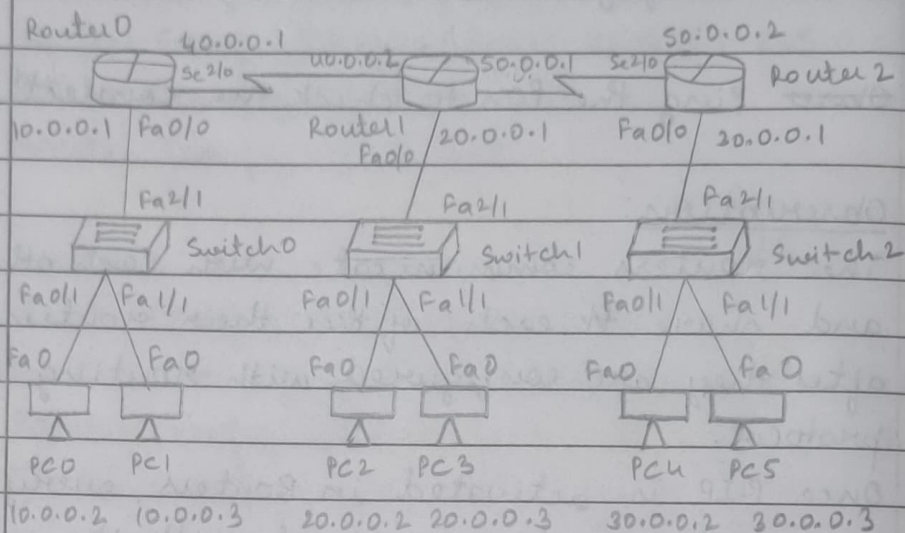 Router0 40.0.0.1 50.0.0.2
Se2/0 40.0.0.2 50.0.0.1 Se2/0 Router 2
10.0.0.1 Fa0/0 Router1 20.0.0.1 Fa0/0 30.0.0.1
Fa0/0
Fa2/1 Fa2/1 Fa2/1
Switch0 Switch1 Switch2
Fa0/1 Fa1/1 Fa0/1 Fa1/1 Fa0/1 Fa1/1
Fa0 Fa0 Fa0 Fa0 Fa0 Fa0
PC0 PC1 PC2 PC3 PC4 PC5
10.0.0.2 10.0.0.3 20.0.0.2 20.0.0.3 30.0.0.2 30.0.0.3